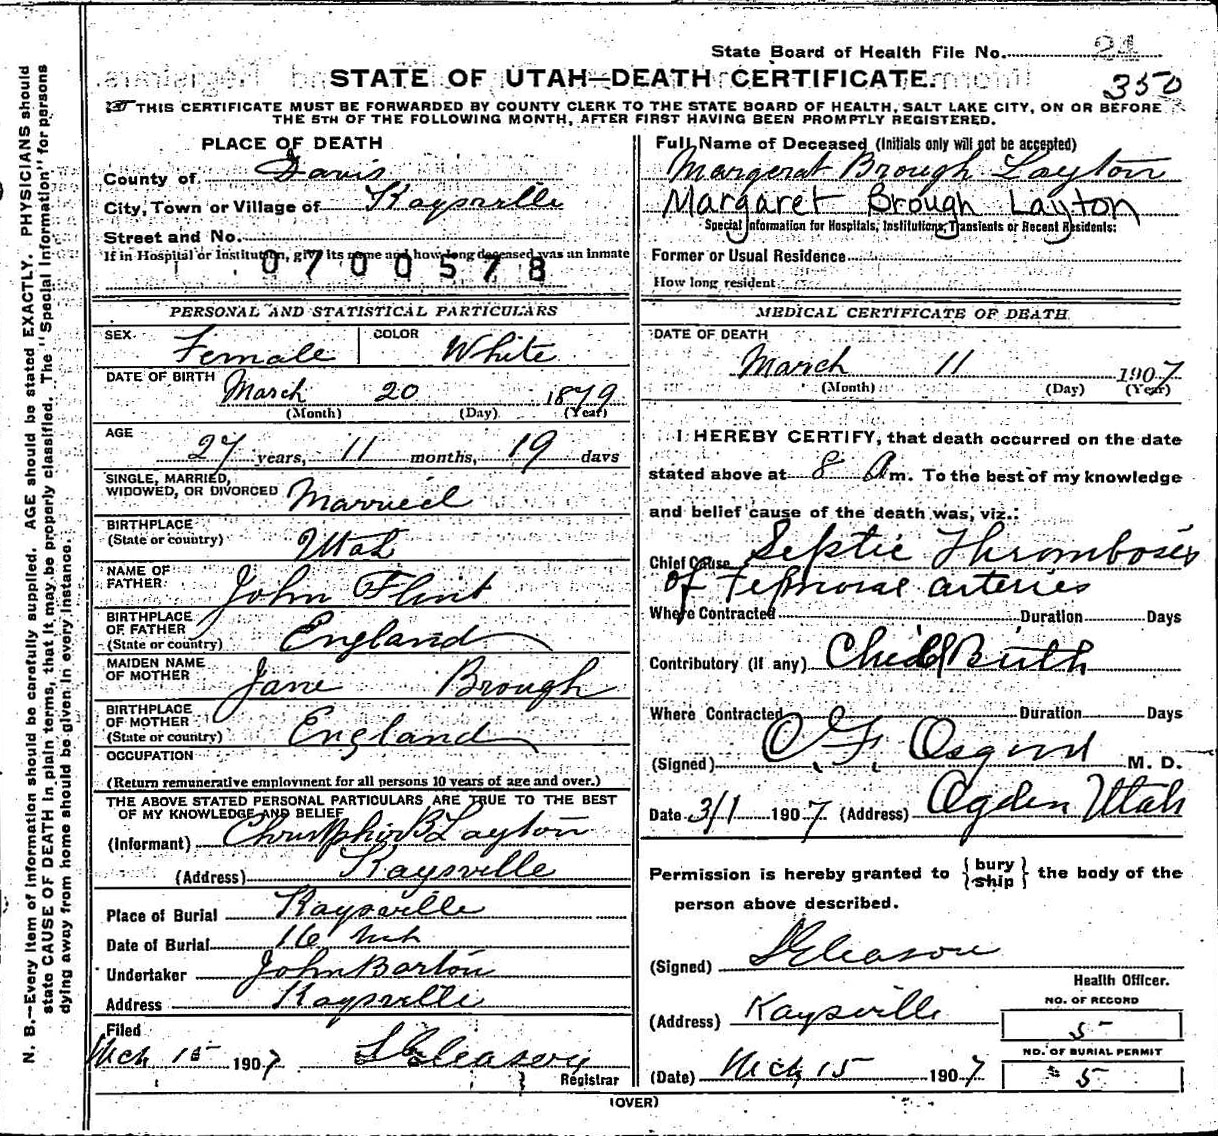 State Board of Health File No. 21
350
STATE OF UTAH—DEATH CERTIFICATE.
THIS CERTIFICATE MUST BE FORWARDED BY COUNTY CLERK TO THE STATE BOARD OF HEALTH, SALT LAKE CITY, ON OR BEFORE
THE 5TH OF THE FOLLOWING MONTH, AFTER FIRST HAVING BEEN PROMPTLY REGISTERED.
N. B.—Every item of information should be carefully supplied. AGE should be stated EXACTLY. PHYSICIANS should
state CAUSE OF DEATH in plain terms, that it may be properly classified. The "Special Information" for persons
dying away from home should be given in every instance.
PLACE OF DEATH
County of Davis
City, Town or Village of Kaysville
Street and No.
If in Hospital or Institution, give its name and how long deceased was an inmate
0700578
PERSONAL AND STATISTICAL PARTICULARS
SEX Female COLOR White
DATE OF BIRTH March 20 1879
(Month) (Day) (Year)
AGE 27 years, 11 months, 19 days
SINGLE, MARRIED,
WIDOWED, OR DIVORCED Married
BIRTHPLACE
(State or country) Utah
NAME OF
FATHER John Flint
BIRTHPLACE
OF FATHER
(State or country) England
MAIDEN NAME
OF MOTHER Jane Brough
BIRTHPLACE
OF MOTHER
(State or country) England
OCCUPATION
(Return remunerative employment for all persons 10 years of age and over.)
THE ABOVE STATED PERSONAL PARTICULARS ARE TRUE TO THE BEST
OF MY KNOWLEDGE AND BELIEF
(Informant) B Layton
(Address) Kaysville
Place of Burial Kaysville
Date of Burial 16 Mch
Undertaker John Barton
Address Kaysville
Filed
Mch 15 1907 Gleason
Registrar
Full Name of Deceased (Initials only will not be accepted)
Margerat Brough Layton
Margaret Brough Layton
Special Information for Hospitals, Institutions, Transients or Recent Residents:
Former or Usual Residence
How long resident
MEDICAL CERTIFICATE OF DEATH
DATE OF DEATH
March 11 1907
(Month) (Day) (Year)
I HEREBY CERTIFY, that death occurred on the date
stated above at 8 A m. To the best of my knowledge
and belief cause of the death was, viz.:
Chief Cause Septic Thrombosis
of Femoral arteries
Where Contracted Duration Days
Contributory (if any) Child Birth
Where Contracted Duration Days
(Signed) O. F. Osgood M. D.
Date 3/1 1907 (Address) Ogden Utah
Permission is hereby granted to {bury ship} the body of the
person above described.
(Signed) Gleason
Health Officer.
(Address) Kaysville
NO. OF RECORD
5
(Date) Mch 15 1907
NO. OF BURIAL PERMIT
5
(OVER)